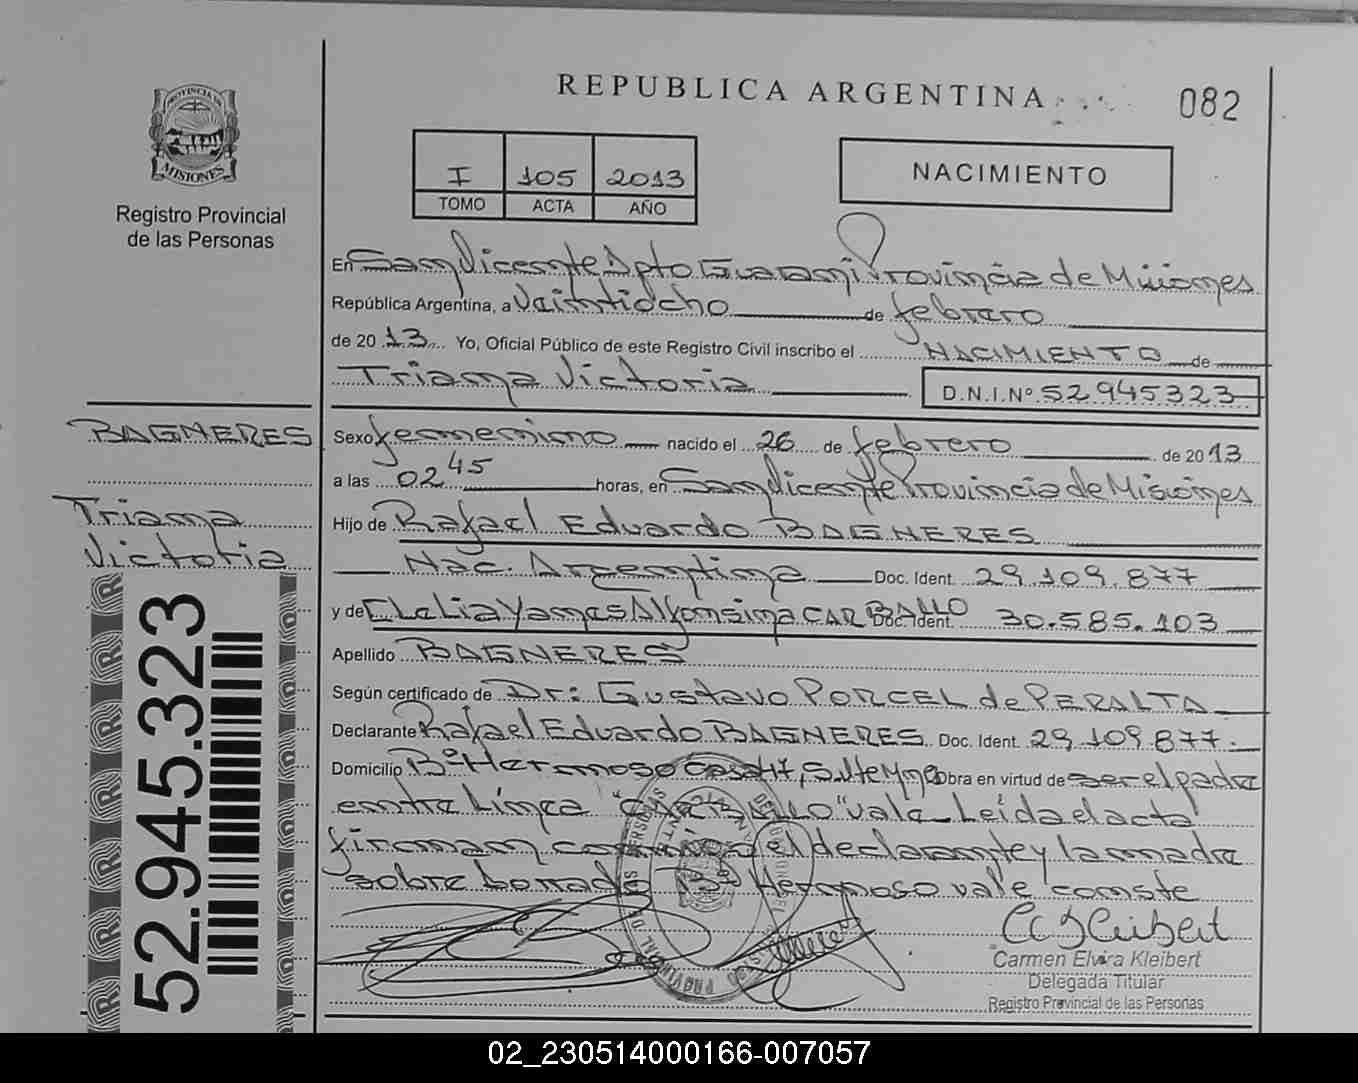 REPUBLICA ARGENTINA
082
PROVINCIA DE
MISIONES
Registro Provincial
de las Personas
I 105 2013
TOMO ACTA AÑO
NACIMIENTO
En San Vicente Dpto Guarani Provincia de Misiones
República Argentina, a Veintiocho de febrero
de 20 13 Yo, Oficial Público de este Registro Civil inscribo el NACIMIENTO de
Triana Victoria D.N.I.Nº 52.945.323
BAGNERES
Triana
Victoria
52.945.323
Sexo femenino nacido el 26 de febrero de 2013
a las 02 45 horas, en San Vicente Provincia de Misiones
Hijo de Rafael Eduardo BAGNERES
Nac. Argentina Doc. Ident. 29.109.877
y de Clelia Yanes Alfonsina CARBALLO Doc. Ident. 30.585.103
Apellido BAGNERES
Según certificado de Dr: Gustavo PORCEL de PERALTA
Declarante Rafael Eduardo BAGNERES Doc. Ident. 29.109.877.
Domicilio Bº Hermoso Casa 17, S. Vte Mnes Obra en virtud de ser el padre
entre Linea "CARBALLO" vale Leída el acta
firman conmigo el declarante y la madre
sobre borrado Bº Hermoso vale conste
C E Kleibert
Carmen Elvira Kleibert
Delegada Titular
Registro Provincial de las Personas
02_230514000166-007057